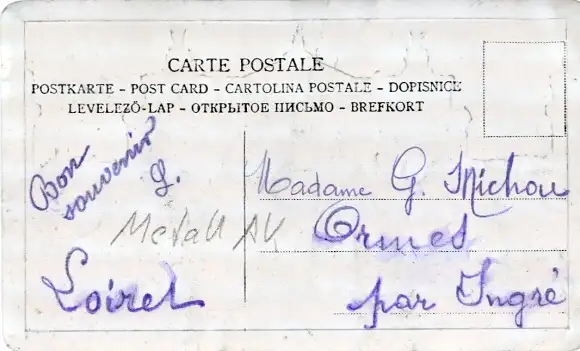 CARTE POSTALE
POSTKARTE – POST CARD – CARTOLINA POSTALE – DOPISNICE
LEVELEZŐ-LAP – ОТКРЫТОЕ ПИСЬМО – BREFKORT
Bon
souvenir
L.
Metall AK
Loiret
Madame G. Michou
Ormes
par Ingré